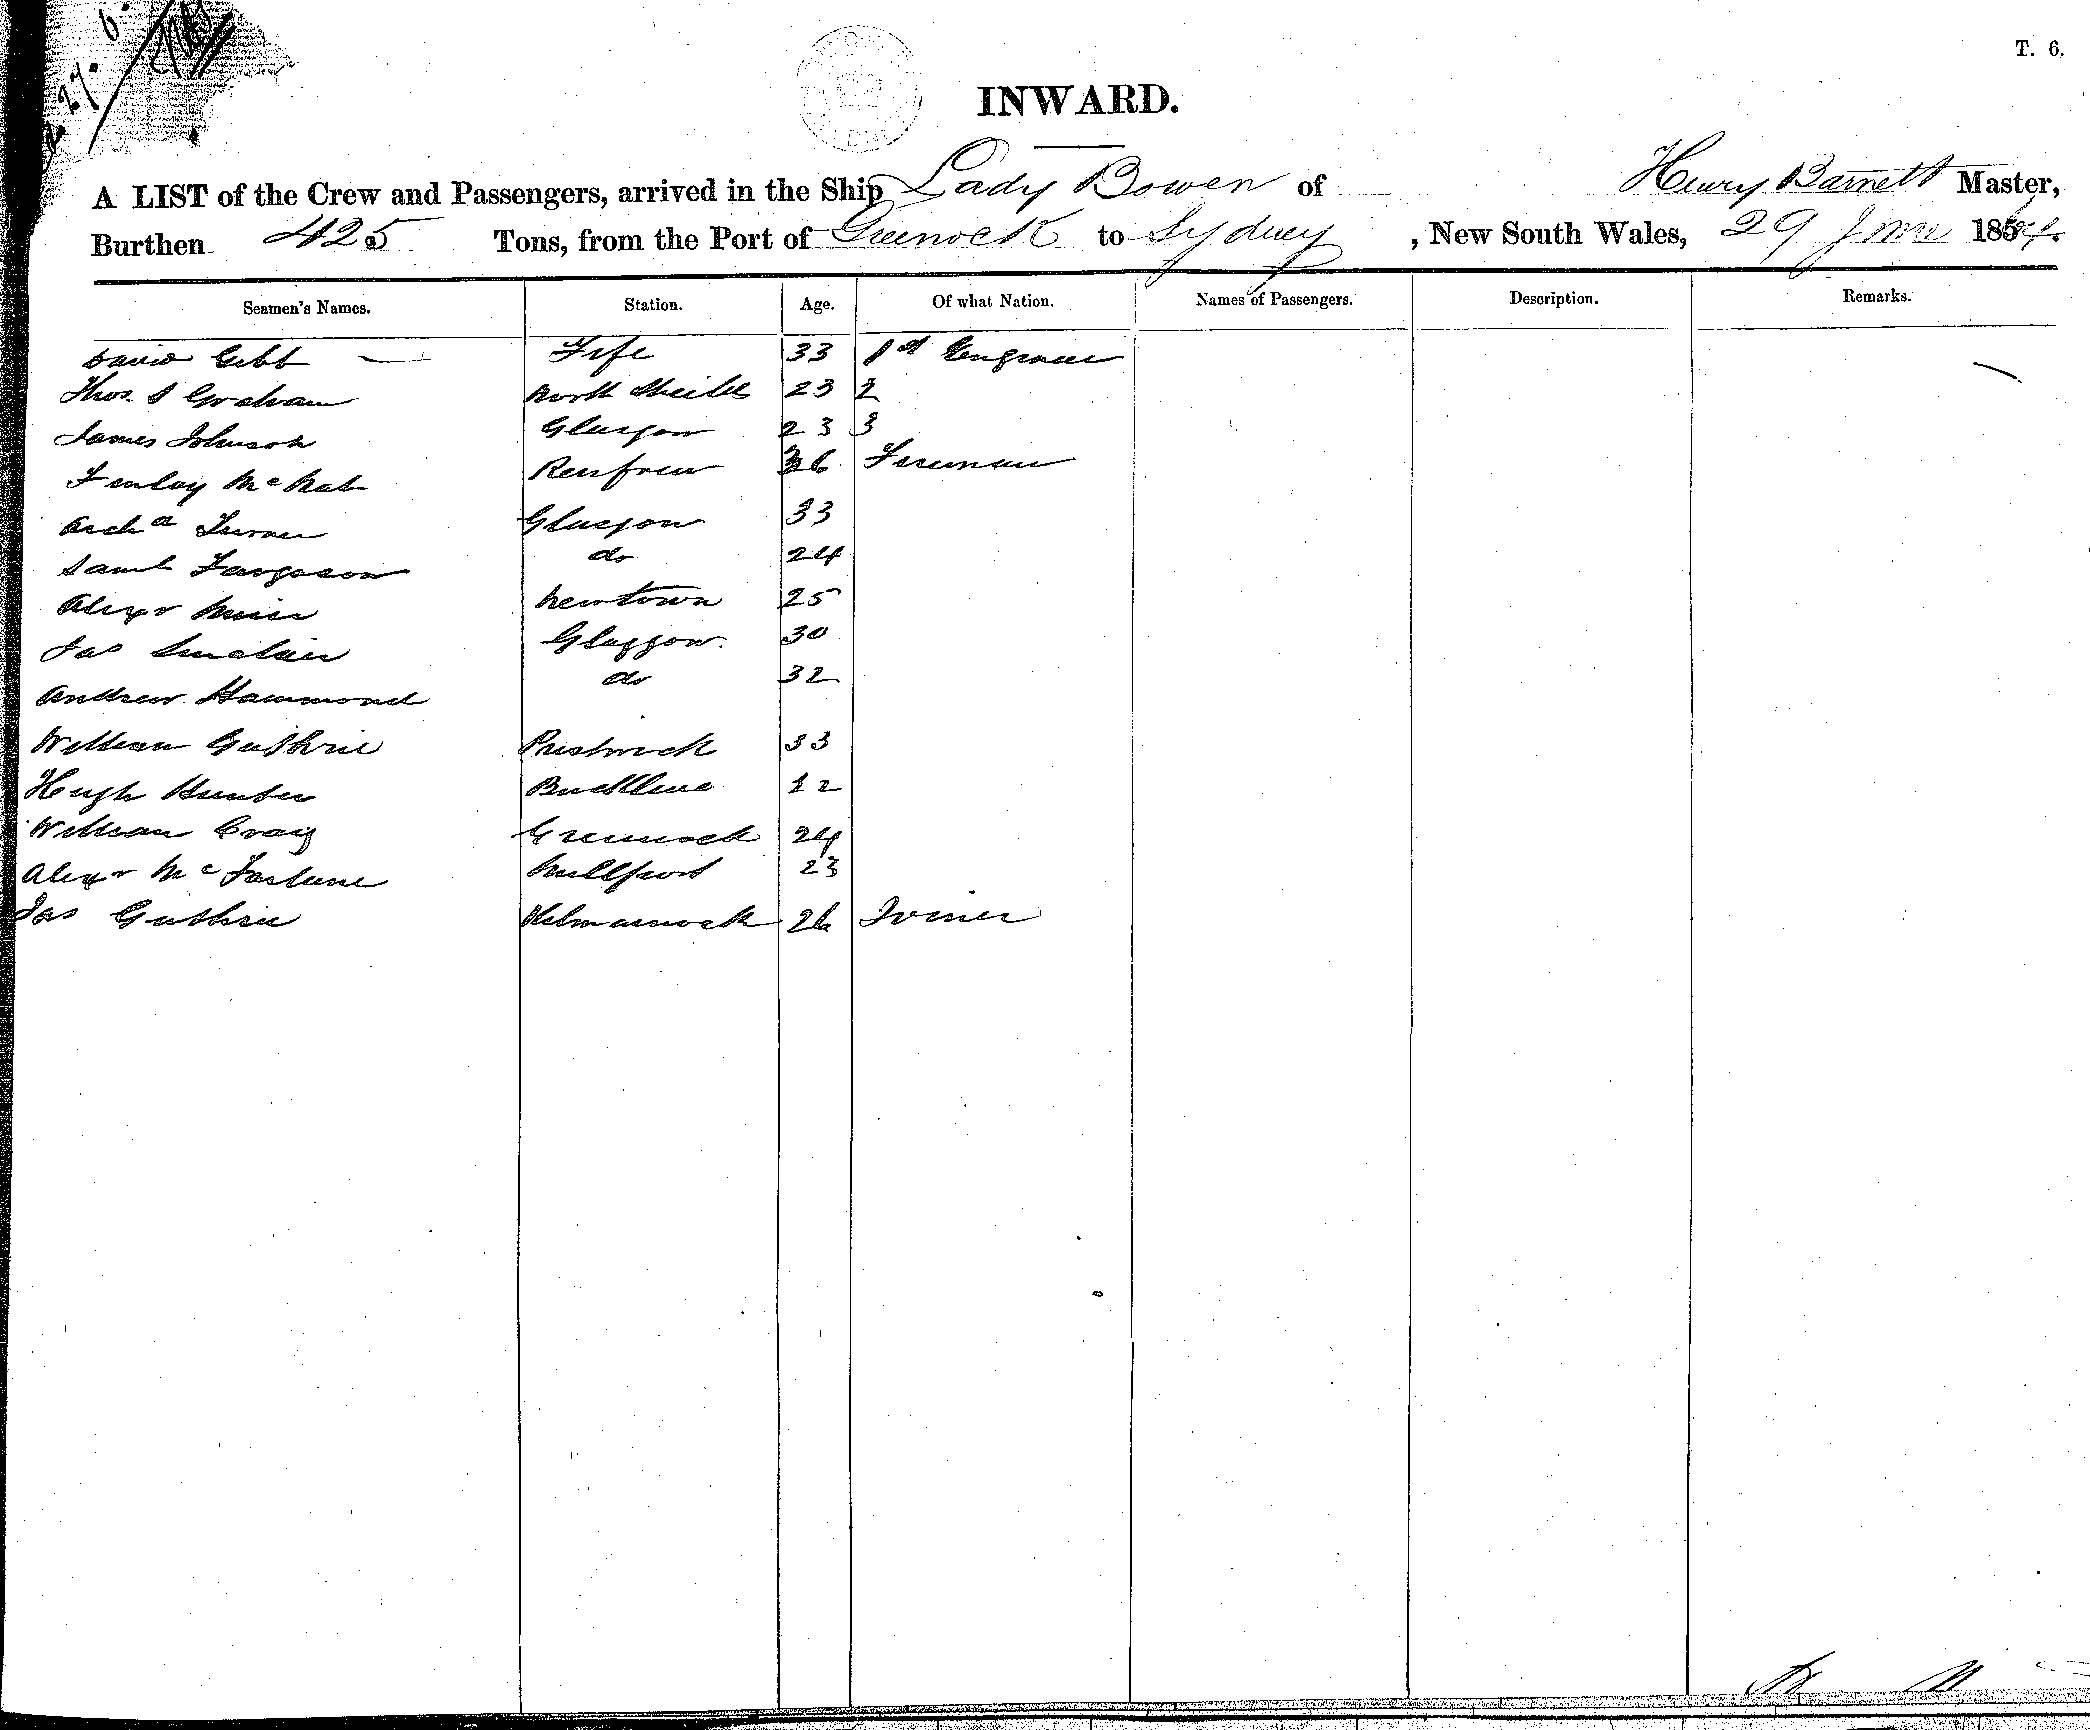 27. 6.
T. 6.
INWARD.
A LIST of the Crew and Passengers, arrived in the Ship Lady Bowen of Henry Barnett Master,
Burthen 425 Tons, from the Port of Greenock to Sydney, New South Wales, 29 June 1864.
Seamen's Names. Station. Age. Of what Nation. Names of Passengers. Description. Remarks.
David Gibb Fife 33 1st Engineer
Thos. S Graham North Shields 23 2
James Johnson Glasgow 23 3
Finlay McNab Renfrew 36 Fireman
Archd Turner Glasgow 33
Saml Ferguson do 24
Alexr Muir Newtown 25
Jas Sinclair Glasgow. 30
Andrew Hammond do 32
William Guthrie Prestwick 33
Hugh Hunter 22
William Craig Greenock 24
Alexr McFarlane Millport 23
Jas Guthrie Kilmarnock 26 Joiner